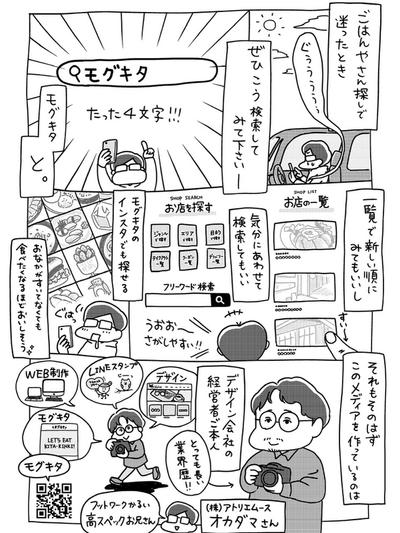 ごはんやさん探しで
迷ったとき
ぐぅうぅぅぅ
ぜひこう検索して
みて下さいー
モグキタ
たった4文字!!!
モグキタ
と。
一覧で新しい順に
みてもいいし
SHOP LIST
お店の一覧
すいー
気分にあわせて
検索してもいい
SHOP SEARCH
お店を探す
ジャンル
エリア
目的
フリーワード検索
うおお〜
さがしやすい!!
モグキタの
インスタでも探せる
ぐはっ
おなかがすいてなくても
食べたくなるほどおいしそう。
それもそのはず
このメディアを作っているのは
デザイン会社の
経営者ご本人
(株)アトリエムース
オカダマさん
とっても長い
業界歴!!
WEB制作
LINEスタンプ
デザイン
モグキタ
LET'S EAT
KITA-KINKI!
モグキタ
フットワークかるい
高スペックお兄さん